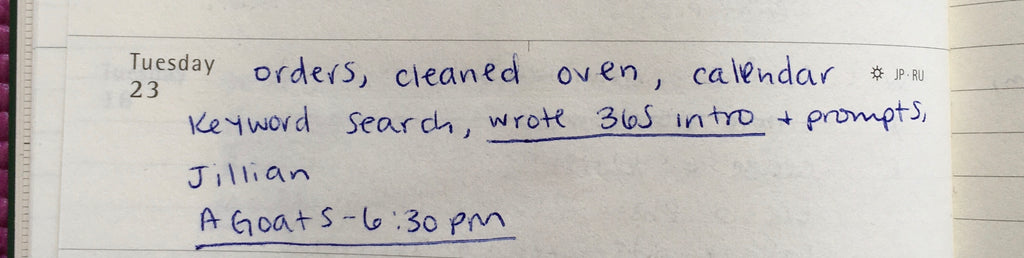 Tuesday orders, cleaned oven, calendar ☼ JP·RU
23 Keyword search, wrote 365 intro + prompts,
Jillian
A Goats - 6:30 pm